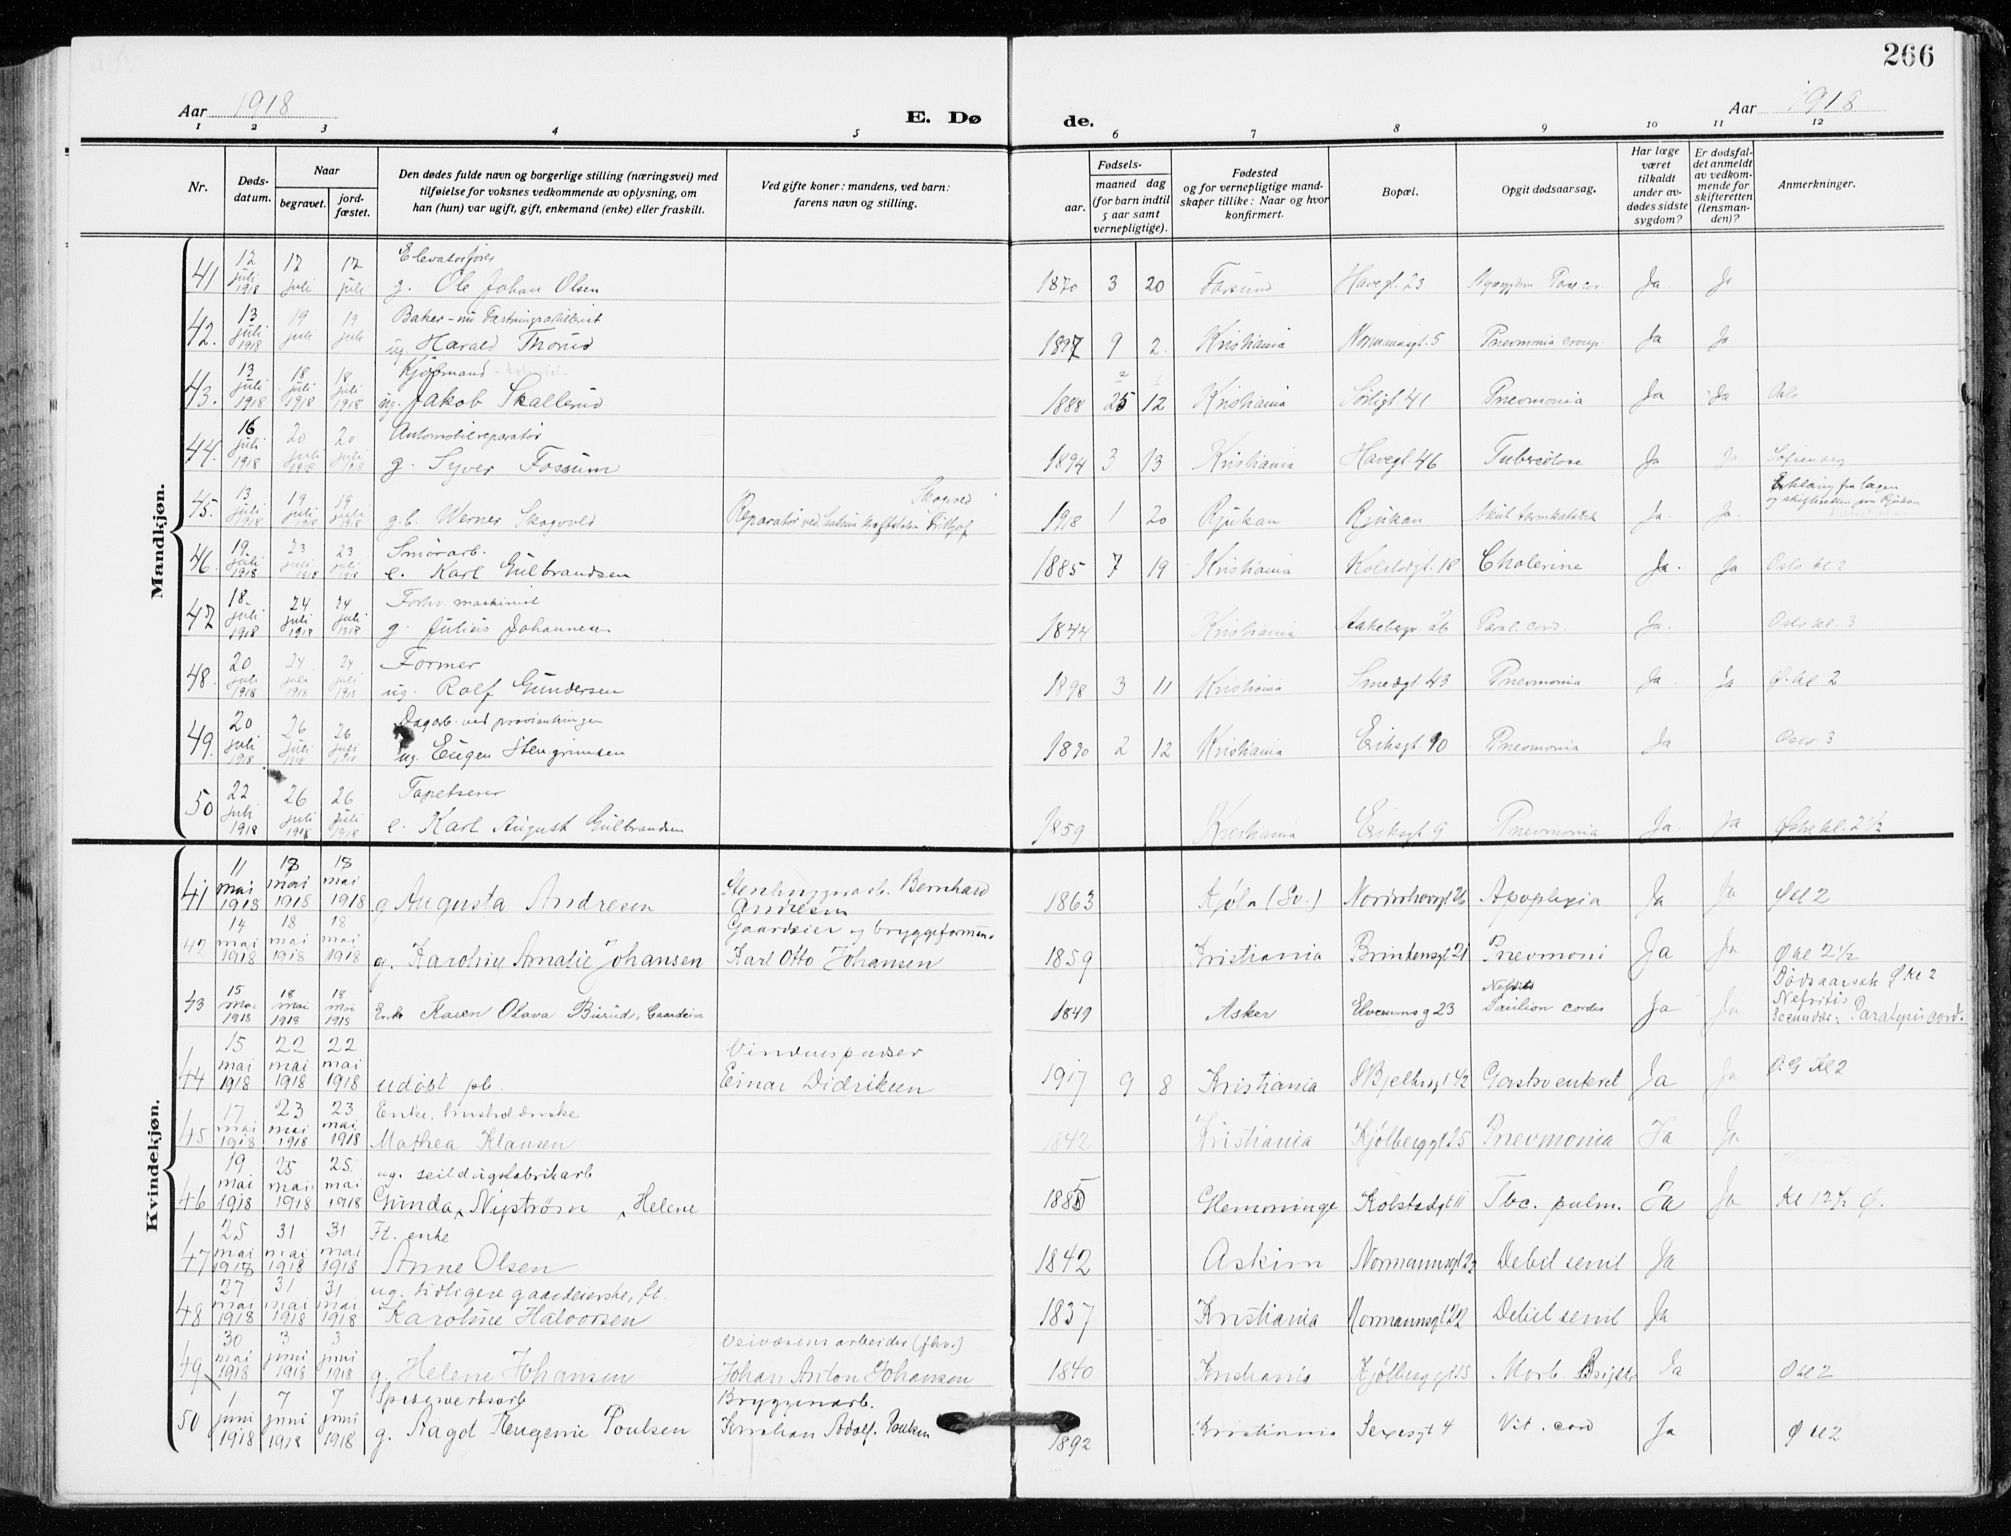 266
Aar 1918
E. Dø
de.
Aar 1918
1 2 3 4 5 6 7 8 9 10 11 12
Nr.
Døds-
datum.
Naar
begravet.
jord-
fæstet.
Den dødes fulde navn og borgerlige stilling (næringsvei) med
tilføielse for voksnes vedkommende av oplysning, om
han (hun) var ugift, gift, enkemand (enke) eller fraskilt.
Ved gifte koner: mandens, ved barn:
farens navn og stilling.
Fødsels-
aar.
maaned dag
(for barn indtil
5 aar samt
vernepligtige).
Fødested
og for vernepligtige mand-
skaper tillike: Naar og hvor
konfirmert.
Bopæl.
Opgit dødsaarsag.
Har læge
været
tilkaldt
under av-
dødes sidste
sygdom?
Er dødsfal-
det anmeldt
av vedkom-
mende for
skifteretten
(lensman-
den)?
Anmerkninger.
Mandkjøn.
41 12 juli 1918 17 juli 17 juli Elevatorfører
g. Ole Johan Olsen 1870 3 20 Farsund Havegt. 23 Ja Ja
42. 13 juli 1918 19 juli 19 juli Baker
ug Harald Thorud 1897 9 2 Kristiania Normannsgt. 5 Pneumonia croup. Ja Ja
43. 13 juli 1918 18 juli 1918 18 juli 1918 Kjøbmand
ug. Jakob Skallerud 1888 12 Kristiania Sørligt 41 Pneumonia Ja Ja Oslo
44. 16 juli 1918 20 juli 1918 20 juli 1918 Automobilreparatør
g. Syver Fossum 1894 3 13 Kristiania Havegt. 46 Tuberculose Ja Ja Sofienberg
45. 13 juli 1918 19 juli 1918 19 juli 1918 g.b. Werner Skogvold Reparatør ved 1918 1 20 Rjukan Rjukan Akut tarmkatarrh Ja. Ja. Erklæring fra lægen
og skifteretten paa Rjukan
46. 19 juli 1918 23 juli 1918 23 juli 1918 Smørarb.
e. Karl Gulbrandsen 1885 7 19 Kristiania Kolstadgt. 18 Cholerine Ja. Ja Oslo kl 2
47 18 juli 1918 24 juli 1918 24 juli 1918 Forhv. maskinist
g. Julius Johannesen 1844 Kristiania Aakebergv 26 Paral. cord. Ja. Oslo kl. 3
48. 20 juli 1918 24 juli 1918 24 juli 1918 Former
ug. Rolf Gundersen 1898 3 11 Kristiania Smedgt. 43 Pneumonia Ja Ja Ø. kl 2
49. 20 juli 1918 26 juli 1918 26 juli 1918 Dagarb. ved provianteringen
ug. Eugen Stengrimsen 1890 2 12 Kristiania Eriksgt. 10 Pneumonia Ja Oslo 3
50 22 juli 1918 26 juli 1918 26 juli 1918 Tapetserer
e. Karl August Gulbrandsen 1859 Kristiania Eriksgt 9 Pneumonia Ja. Ja Østre kl. 2 1/2
Kvindekjøn.
41 11 mai 1918 18 mai 1918 18 mai 1918 g Augusta Andresen Stenhuggerarb. Bernhard
Andresen 1863 Kjøln (Sv.) Nordahovsgt 26 Apoplexia Ja Ja Ø kl 2
42 14 mai 1918 18 mai 1918 18 mai 1918 g. Karoline Amalie Johansen Gaardeier og bryggeformand
Karl Otto Johansen 1859 Kristiania Brinkensgt 21 Pneumoni Ja Ja Ø kl 2 1/2
43 15 mai 1918 18 mai 1918 18 mai 1918 Enke Karen Olava Burud, Gaardeier 1849 Asker Elvesmsg 23 Nefritis cordis Ja Ja Dødsaarsak Ø kl 2
Nefritis
Secundær: Paralysis cord.
44 15 mai 1918 22 mai 1918 22 mai 1918 udøbt pb. Vinduspudser
Einar Didriksen 1917 9 8 Kristiania St Bjelkesgt 42 Gastroenterit Ja Ja Ø.G Kl 2
45 17 mai 1918 23 mai 1918 23 mai 1918 Enke,
Mathea Klausen 1842 Kristiania Kjølberggt 25 Pneumonia Ja Ja
46 19 mai 1918 25 mai 1918 25 mai 1918 ug. seildugsfabrikarb
Gunda Nystrøm Helene 1885 Glemminge Kolstadgt 11 Tbc. pulm. Ja Ja Kl 12 1/2 Ø.
47 25 mai 1918 31 mai 1918 31 mai 1918 Ft. enke
Anne Olsen 1842 Askim Normannsgt 22 Debil senil Ja
48 27 mai 1918 31 mai 1918 31 mai 1918 ug. tidligere gaardeierske, ft.
Karoline Halvorsen 1837 Kristiania Normannsgt 22 Debil senil Ja
49 30 mai 1918 3 juni 1918 3 juni 1918 g Helene Johansen Veivæsensarbeider (fhv.)
Johan Anton Johansen 1840 Kristiania Kjølberggt 15 Morb. Brightii Ja Ø kl 2
50 1 juni 1918 7 juni 1918 7 juni 1918 Spigerverksarb
g. Aagot Eugenie Poulsen Bryggeriarb.
Kristian Adolf Poulsen 1892 Kristiania Sexesgt 4 Vit. cord Ja Ø kl 2